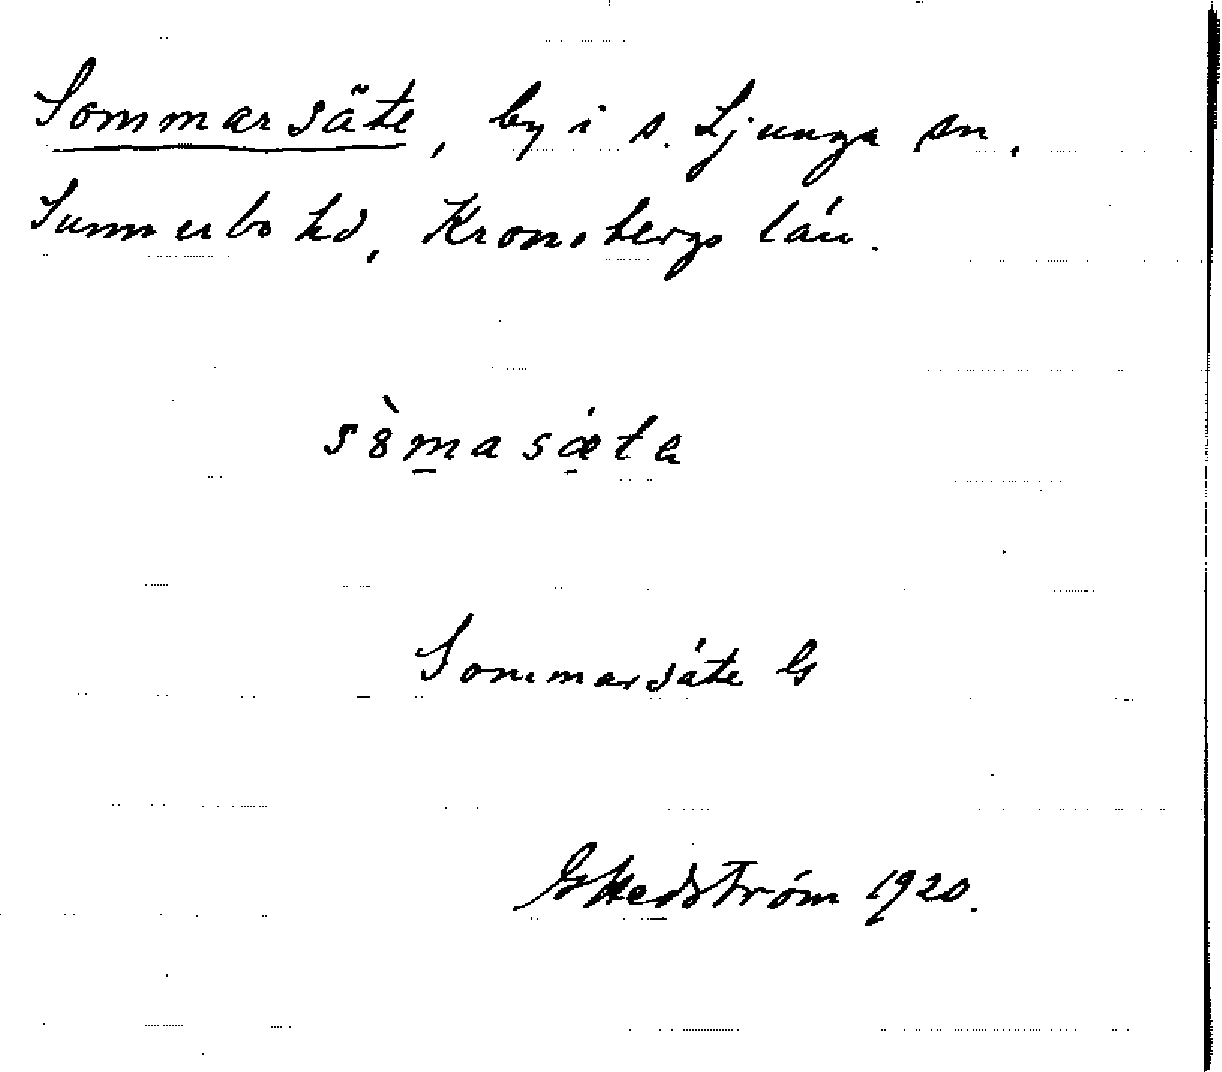 Sommarsäte, by i s. Ljunga sn,
Sunnerbo hd, Kronobergs län.
s8̀m̠asæ̠̇ta
Sommarsäte G
G Hedström 1920.